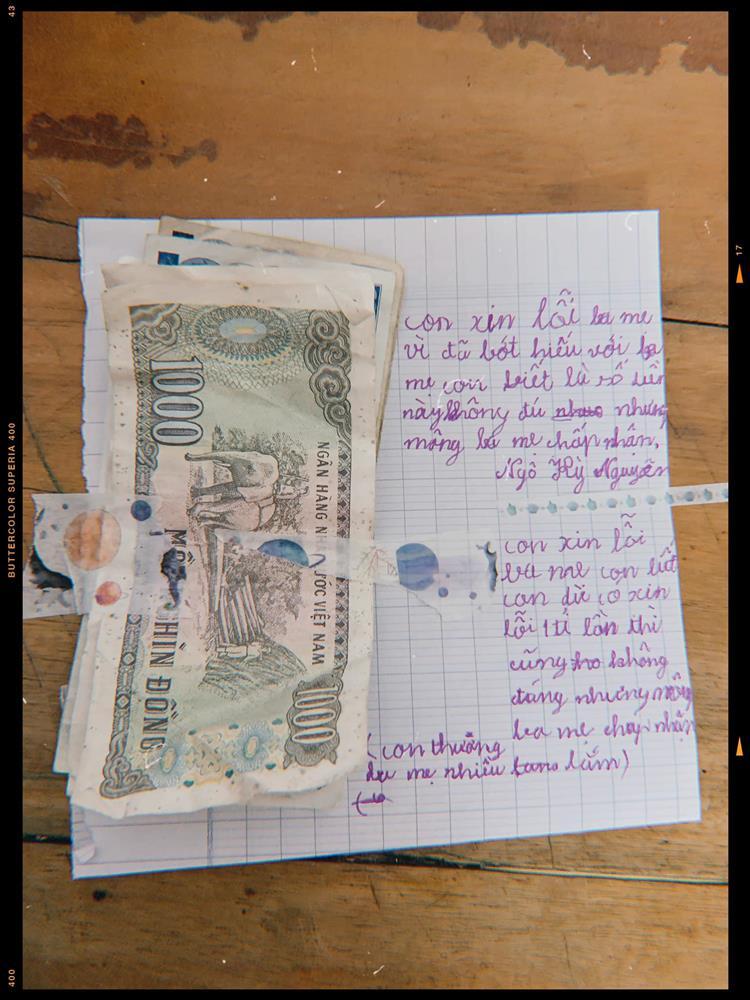 43
BUTTERCOLOR SUPERIA 400
400
17
1000
NGÂN HÀNG NƯỚC VIỆT NAM
MỘT NGHÌN ĐỒNG
1000
con xin lỗi ba mẹ
vì đã bất hiếu với ba
mẹ con biết là số tiền
này không đủ nhưng
mong ba mẹ chấp nhận.
Ngô Kỳ Nguyên
con xin lỗi
ba mẹ con biết
con dù có xin
lỗi 1 tỉ lần thì
cũng không
đáng nhưng mong
ba mẹ chấp nhận
(con thương
ba mẹ nhiều lắm)